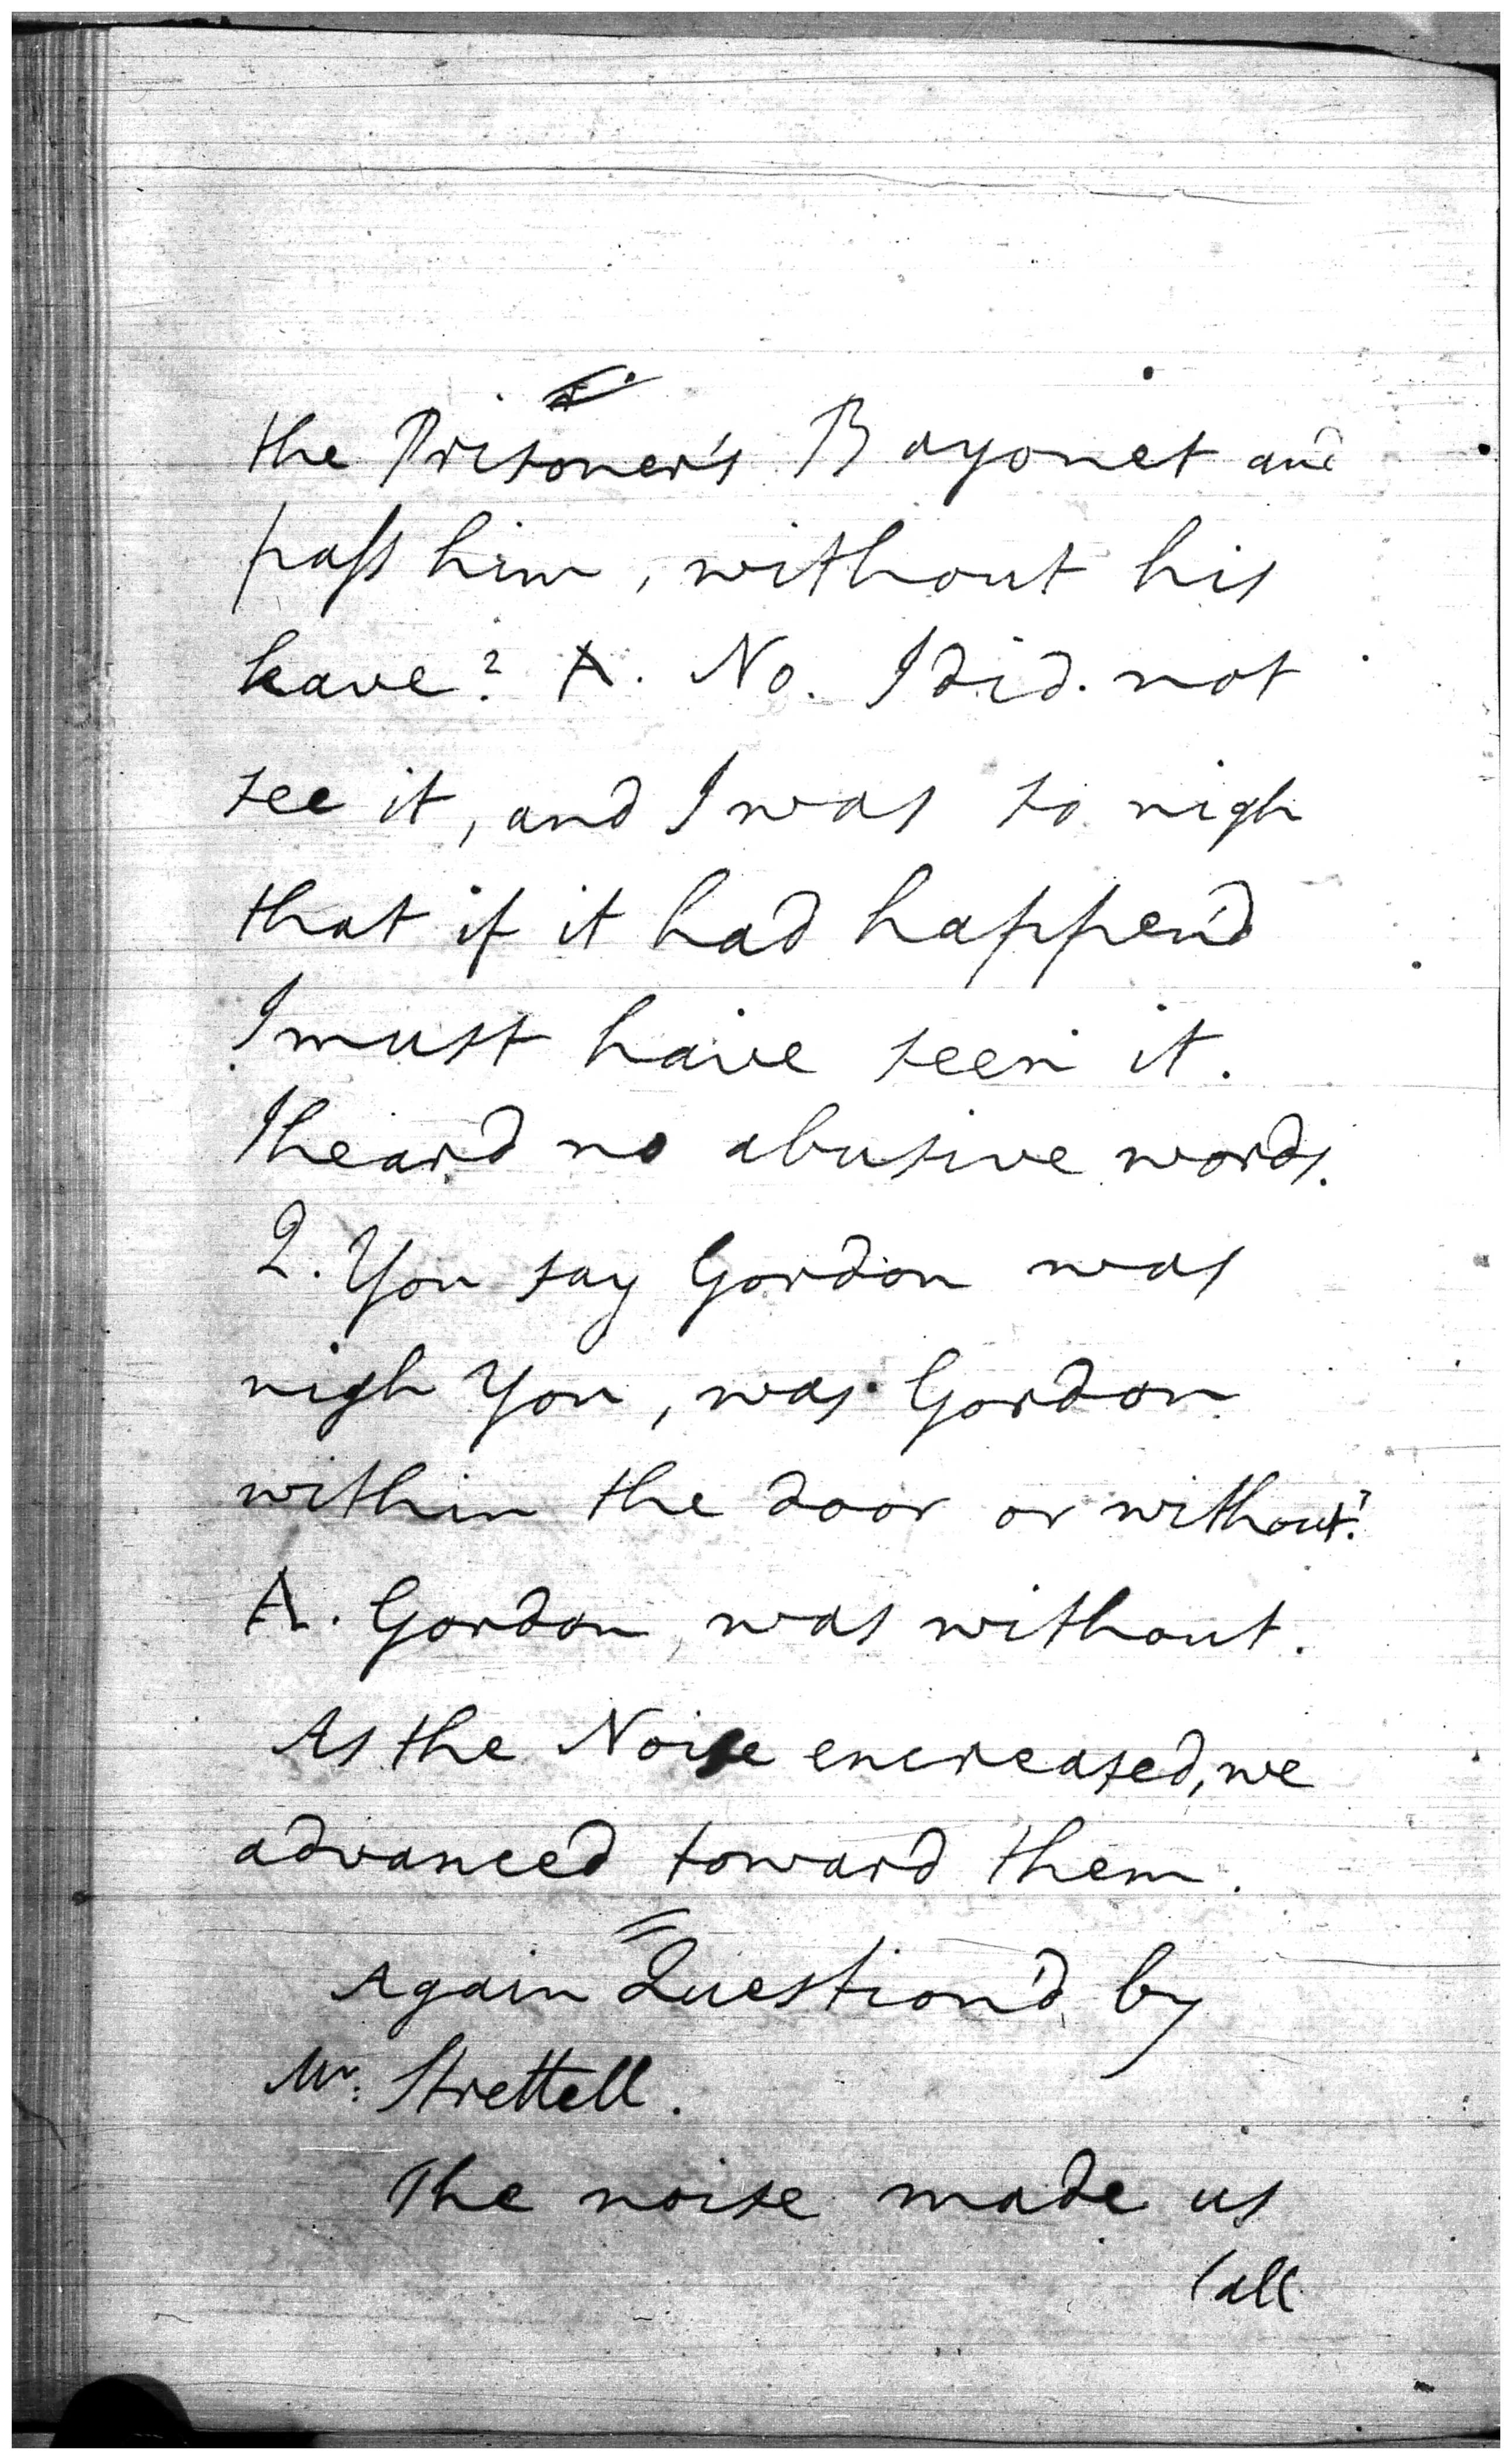 the Prisoner's Bayonet and
pass him, without his
leave? A. No. I did not
see it, and I was so nigh
that if it had happen'd
I must have seen it.
I heard no abusive words.
Q. You say Gordon was
nigh You, was Gordon
within the door or without?
A. Gordon was without.
As the Noise encreased, we
advanced toward them.
Again Question'd by
Mr. Strettell.
The noise made us
(all